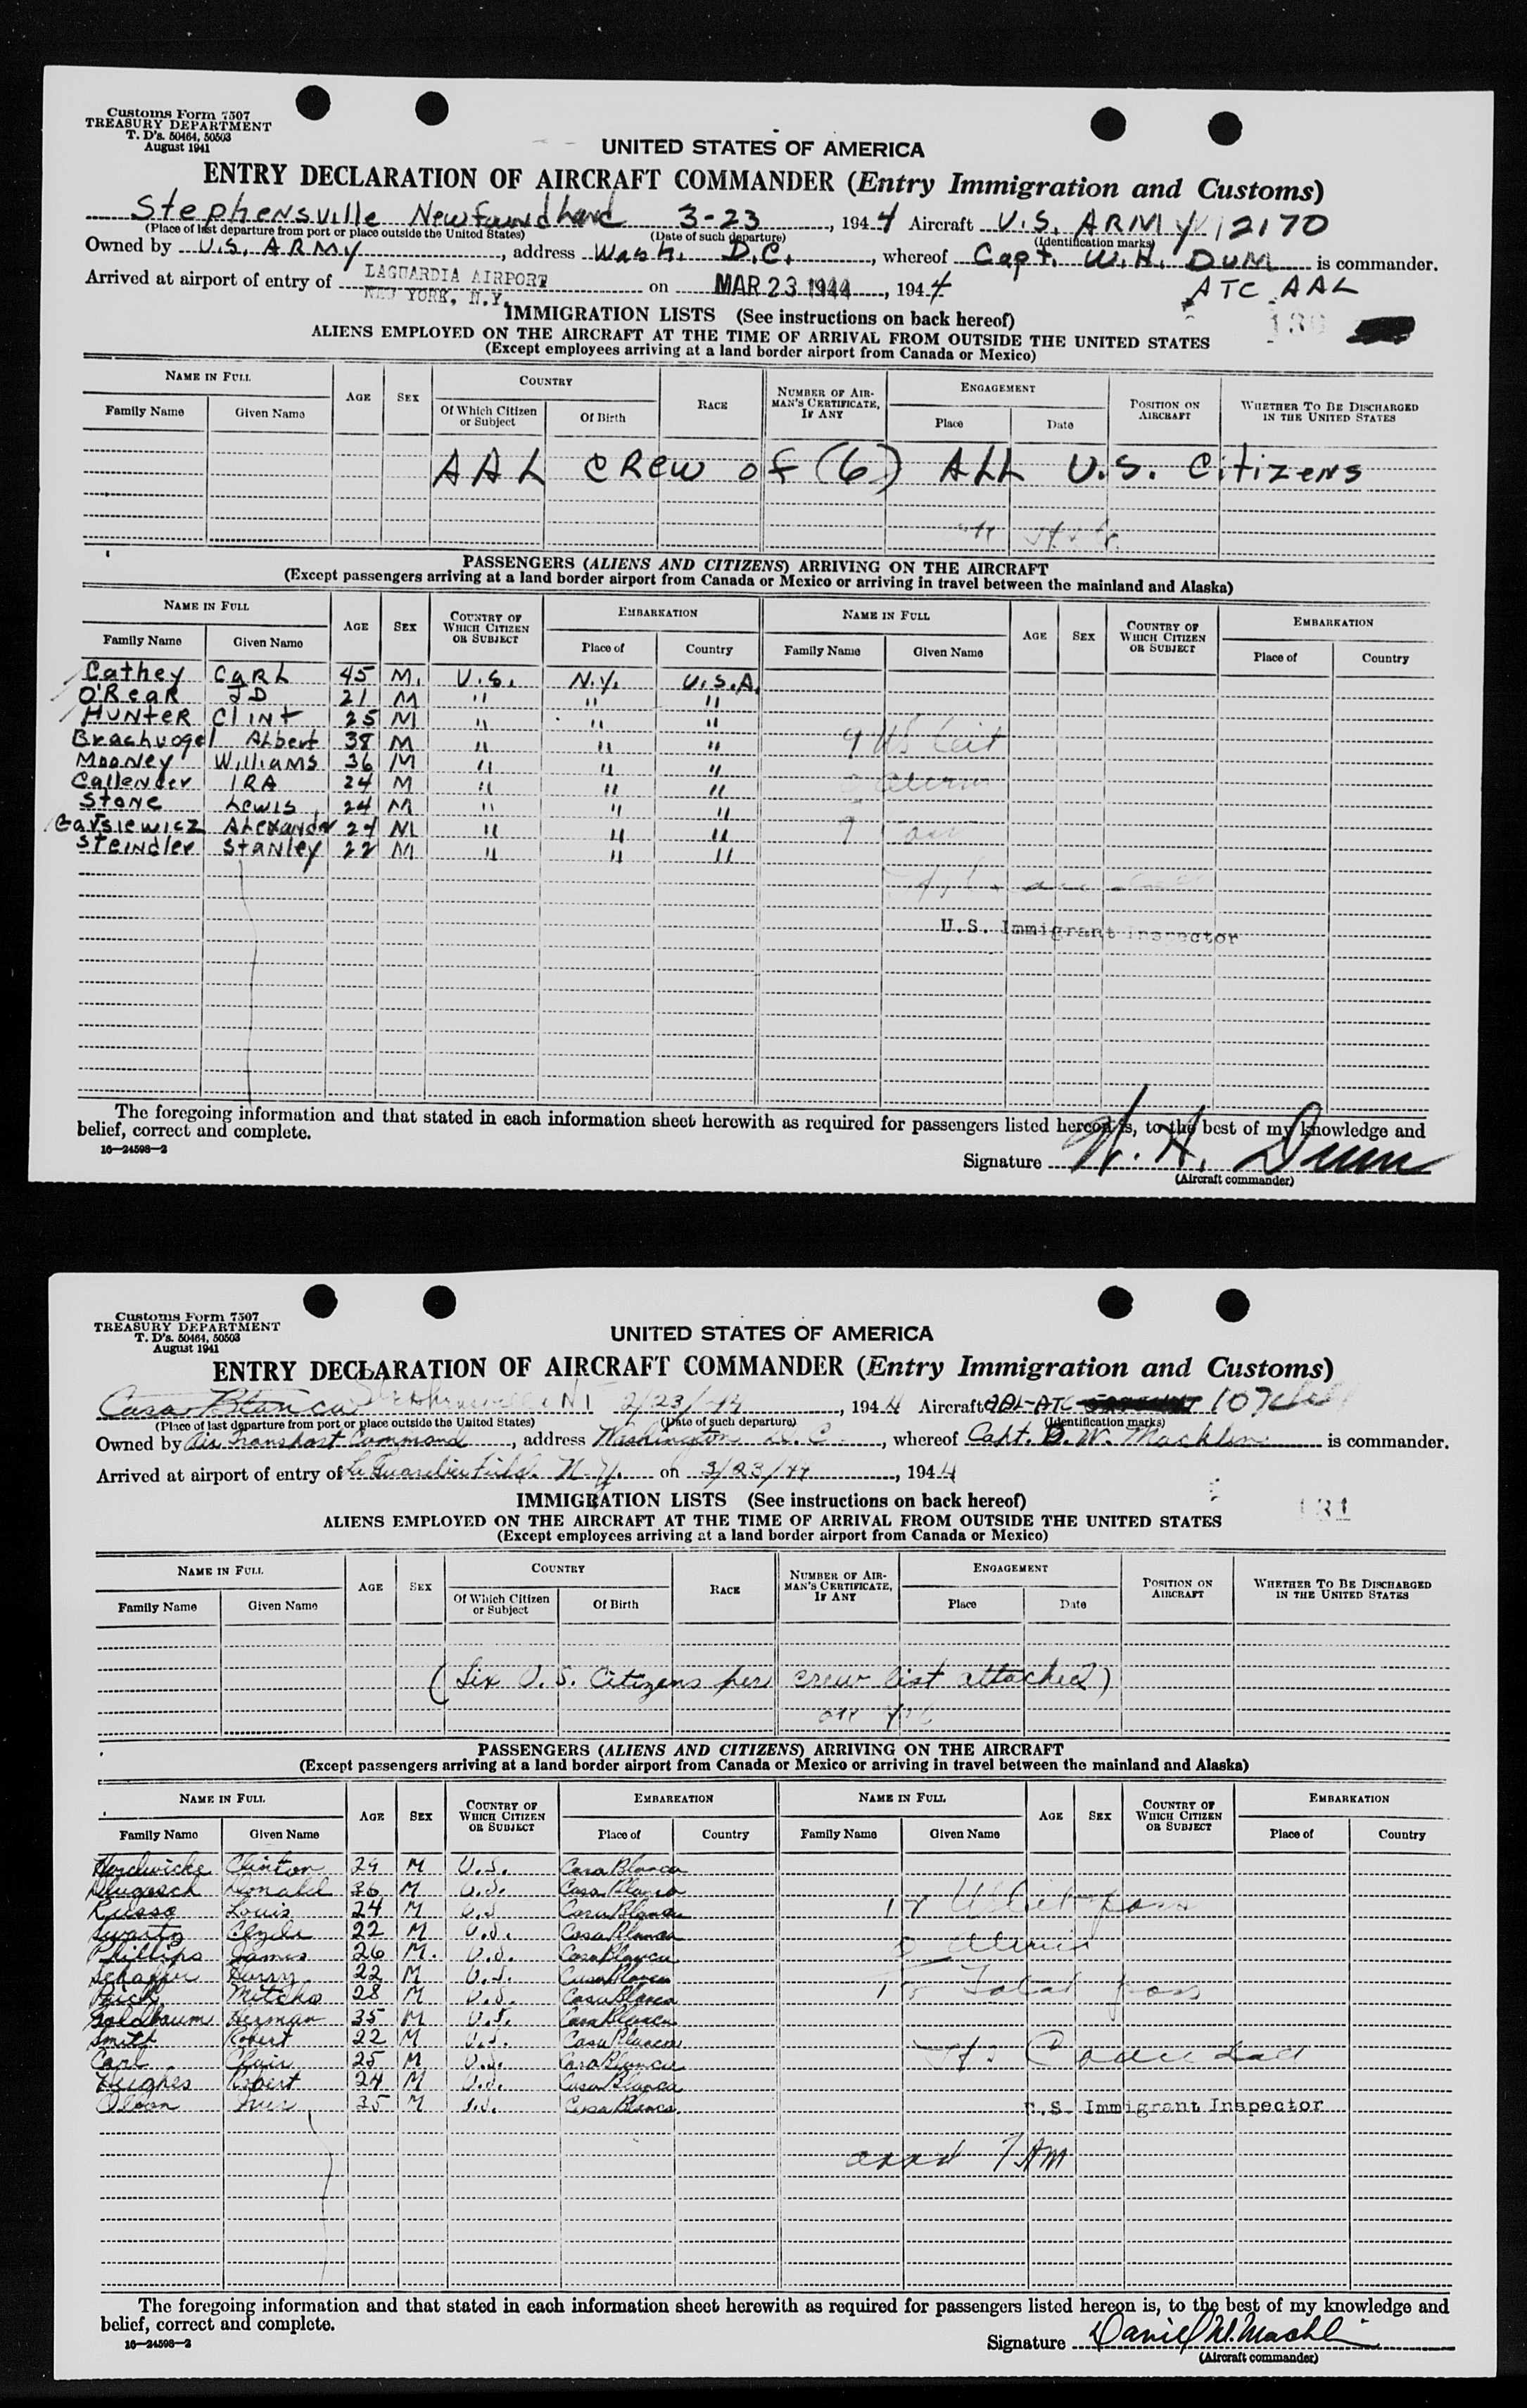 Customs Form 7507
TREASURY DEPARTMENT
T. D's. 50464, 50503
August 1941
UNITED STATES OF AMERICA
ENTRY DECLARATION OF AIRCRAFT COMMANDER (Entry Immigration and Customs)
Stephensville Newfundland 3-23, 1944 Aircraft U.S. ARMY 12170
(Place of last departure from port or place outside the United States) (Date of such departure) (Identification marks)
Owned by U.S. ARMY, address Wash. D.C., whereof Capt. W.H. DUM is commander.
Arrived at airport of entry of LAGUARDIA AIRPORT NEW YORK, N.Y. on MAR 23 1944, 1944 ATC AAL
IMMIGRATION LISTS (See instructions on back hereof)
ALIENS EMPLOYED ON THE AIRCRAFT AT THE TIME OF ARRIVAL FROM OUTSIDE THE UNITED STATES
(Except employees arriving at a land border airport from Canada or Mexico)
NAME IN FULL AGE SEX COUNTRY RACE NUMBER OF AIRMAN'S CERTIFICATE, IF ANY ENGAGEMENT POSITION ON AIRCRAFT WHETHER TO BE DISCHARGED IN THE UNITED STATES
Family Name Given Name Of Which Citizen or Subject Of Birth Place Date
AAL CREW of (6) ALL U.S. Citizens
PASSENGERS (ALIENS AND CITIZENS) ARRIVING ON THE AIRCRAFT
(Except passengers arriving at a land border airport from Canada or Mexico or arriving in travel between the mainland and Alaska)
NAME IN FULL AGE SEX COUNTRY OF WHICH CITIZEN OR SUBJECT EMBARKATION NAME IN FULL AGE SEX COUNTRY OF WHICH CITIZEN OR SUBJECT EMBARKATION
Family Name Given Name Place of Country Family Name Given Name Place of Country
Cathey CARL 45 M. U.S. N.Y. U.S.A.
O'Rear JD 21 M " " "
HUNTER CLINT 25 M " " "
Brachvogel Albert 38 M " " "
Mooney Williams 36 M " " "
Callender IRA 24 M " " "
Stone Lewis 24 M " " "
Garsiewicz Alexander 24 M " " "
Steindler Stanley 22 M " " "
U.S. Immigrant Inspector
The foregoing information and that stated in each information sheet herewith as required for passengers listed hereon is, to the best of my knowledge and
belief, correct and complete.
16—24598—2
Signature W. H. Dunn
(Aircraft commander)
Customs Form 7507
TREASURY DEPARTMENT
T. D's. 50464, 50503
August 1941
UNITED STATES OF AMERICA
ENTRY DECLARATION OF AIRCRAFT COMMANDER (Entry Immigration and Customs)
Casa Blanca 3/23/44, 1944 Aircraft AAL-ATC
(Place of last departure from port or place outside the United States) (Date of such departure) (Identification marks)
Owned by Air Transport Command, address Washington D.C., whereof Capt. D. W. Macklin is commander.
Arrived at airport of entry of La Guardia Field N.Y. on 3/23/44, 1944
131
IMMIGRATION LISTS (See instructions on back hereof)
ALIENS EMPLOYED ON THE AIRCRAFT AT THE TIME OF ARRIVAL FROM OUTSIDE THE UNITED STATES
(Except employees arriving at a land border airport from Canada or Mexico)
NAME IN FULL AGE SEX COUNTRY RACE NUMBER OF AIRMAN'S CERTIFICATE, IF ANY ENGAGEMENT POSITION ON AIRCRAFT WHETHER TO BE DISCHARGED IN THE UNITED STATES
Family Name Given Name Of Which Citizen or Subject Of Birth Place Date
(Six U.S. Citizens per crew list attached)
PASSENGERS (ALIENS AND CITIZENS) ARRIVING ON THE AIRCRAFT
(Except passengers arriving at a land border airport from Canada or Mexico or arriving in travel between the mainland and Alaska)
NAME IN FULL AGE SEX COUNTRY OF WHICH CITIZEN OR SUBJECT EMBARKATION NAME IN FULL AGE SEX COUNTRY OF WHICH CITIZEN OR SUBJECT EMBARKATION
Family Name Given Name Place of Country Family Name Given Name Place of Country
Hardwicke Clinton 29 M U.S. Casa Blanca
Donald 36 M U.S. Casa Blanca
Russo Louis 24 M U.S. Casa Blanca
Swartz Clyde 22 M U.S. Casa Blanca
Phillips James 26 M. U.S. Casa Blanca
Schaffer Harry 22 M U.S. Casa Blanca
Mitcho 28 M U.S. Casa Blanca
Goldbaum Herman 35 M U.S. Casa Blanca
Smith Robert 22 M U.S. Casa Blanca
Carl Clair 25 M U.S. Casa Blanca
Hughes Robert 24 M U.S. Casa Blanca
35 M U.S. Casa Blanca
U.S. Immigrant Inspector
7 AM
The foregoing information and that stated in each information sheet herewith as required for passengers listed hereon is, to the best of my knowledge and
belief, correct and complete.
16—24598—2
Signature Daniel W. Macklin
(Aircraft commander)